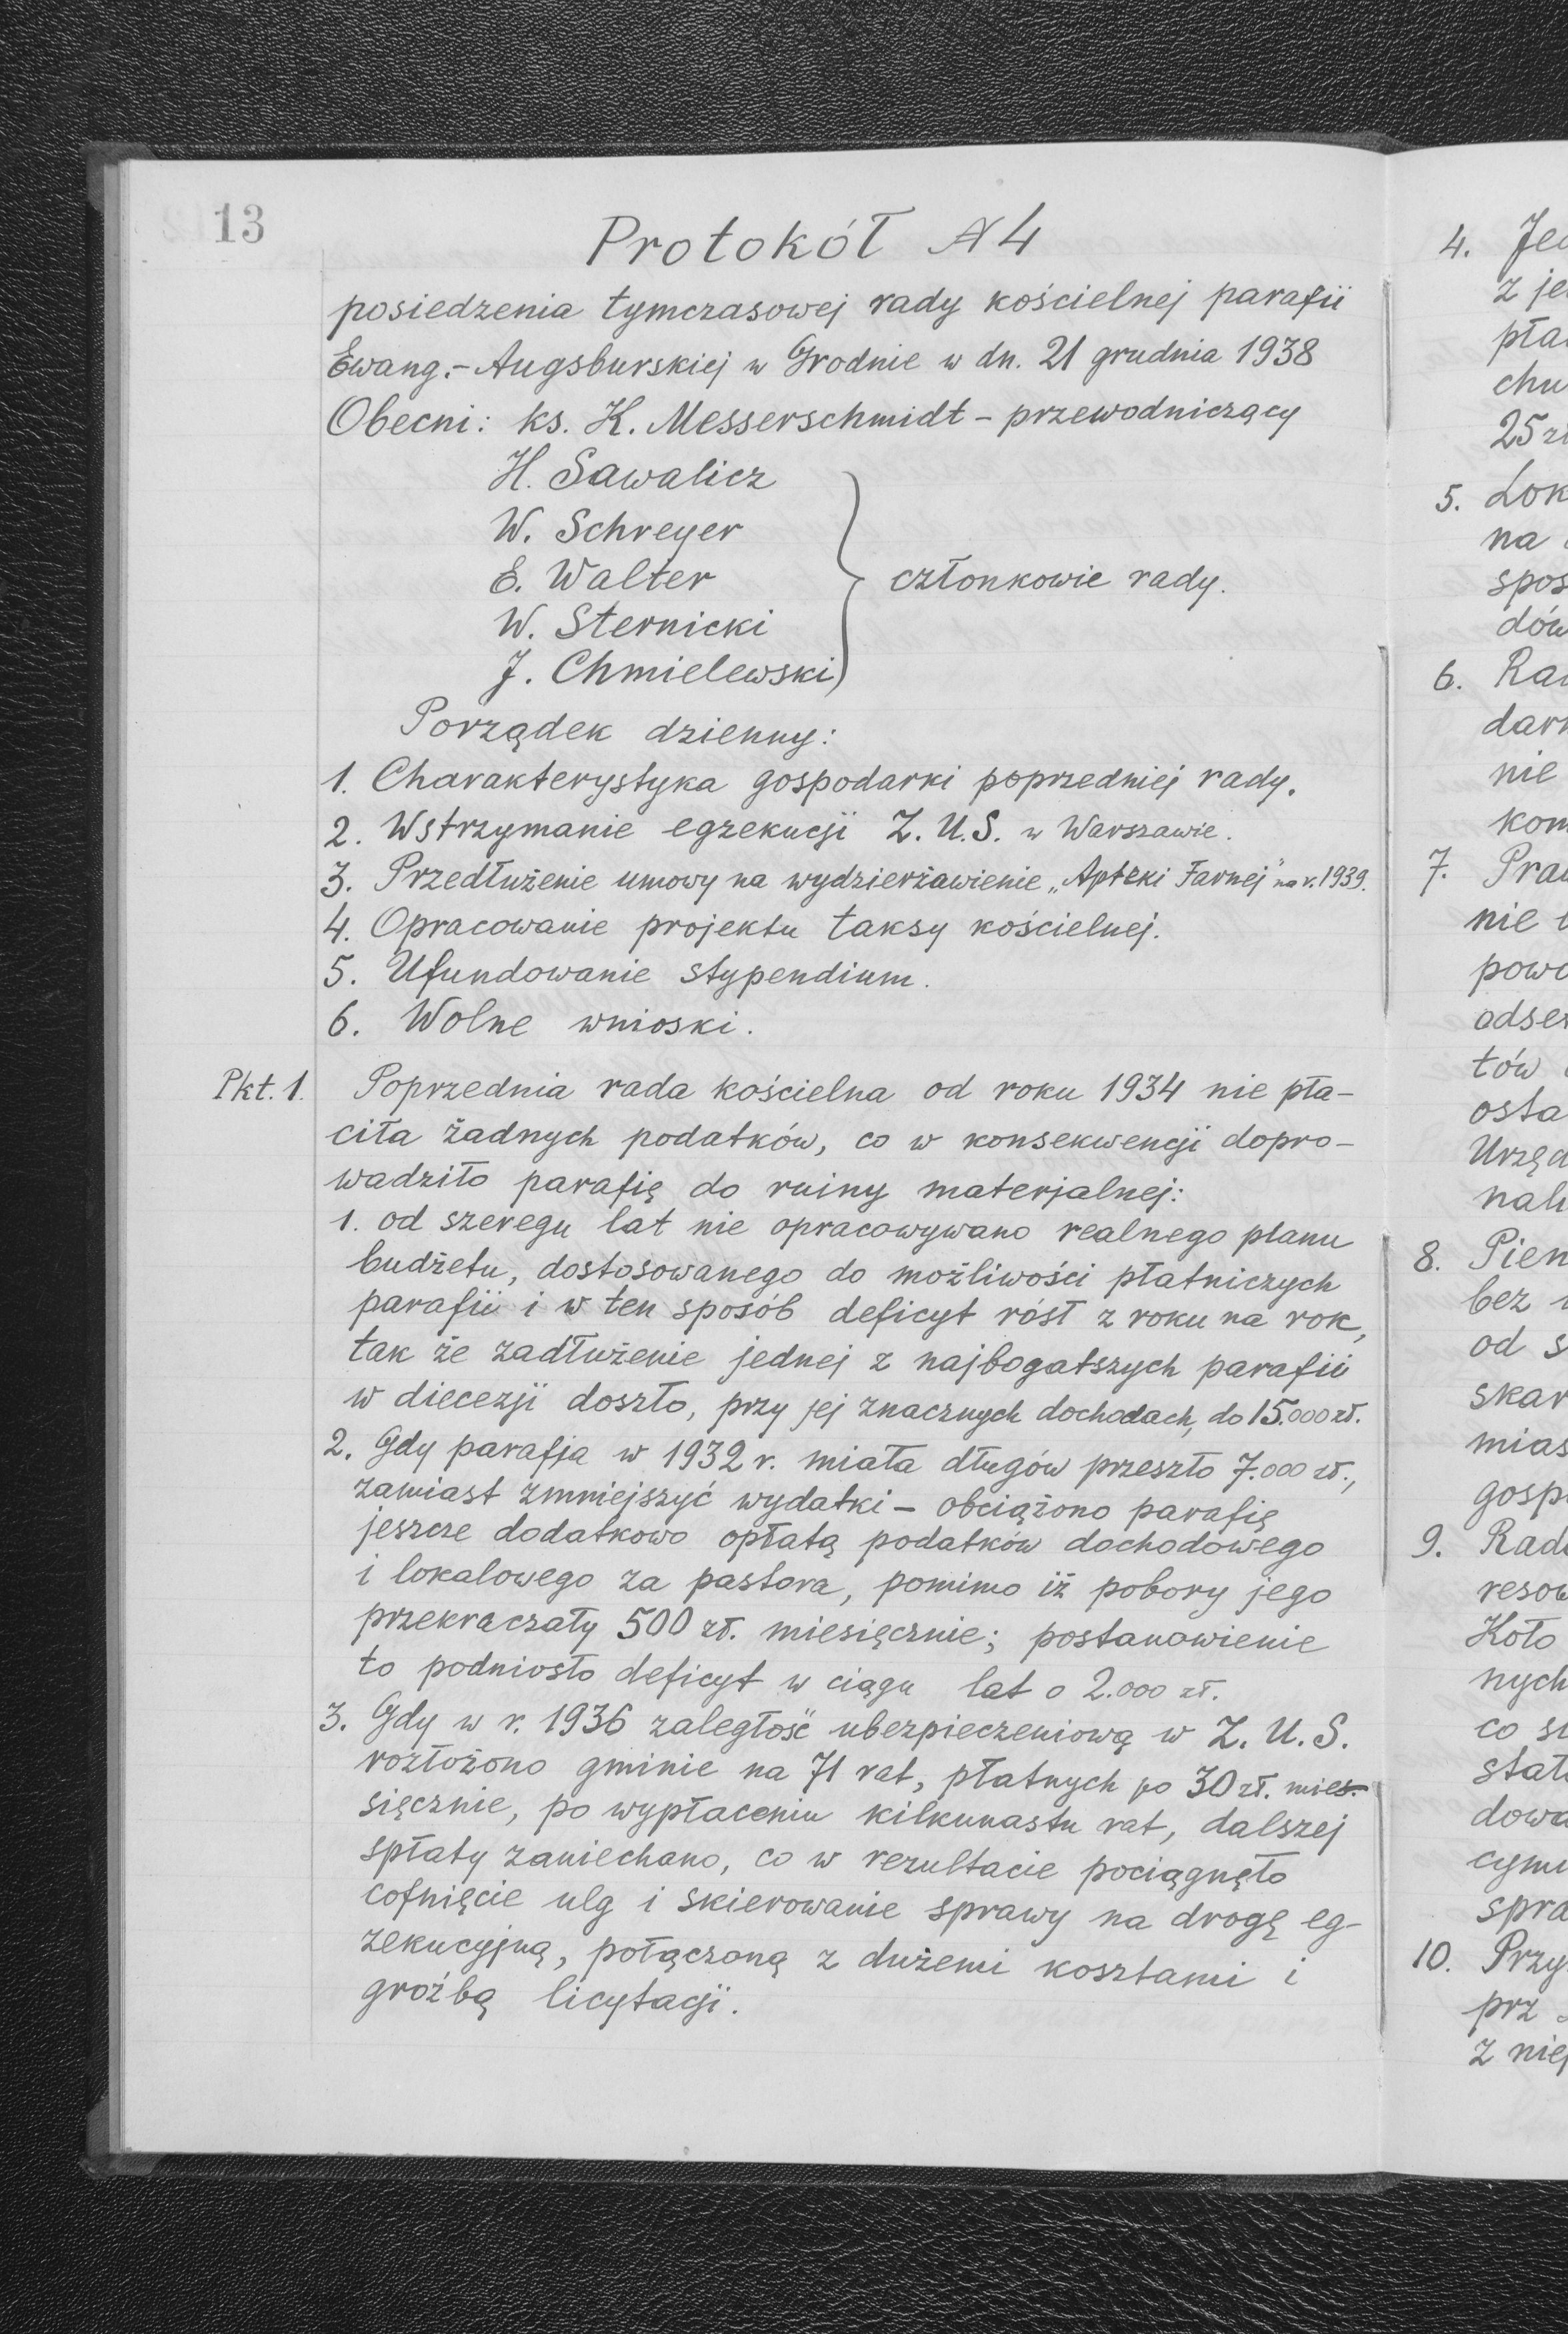 13
Protokół № 4
posiedzenia tymczasowej rady kościelnej parafii
Ewang.-Augsburskiej w Grodnie w dn. 21 grudnia 1938
Obecni: ks. K. Messerschmidt - przewodniczący
H. Sawalicz
W. Schreyer
E. Walter
członkowie rady.
W. Sternicki
J. Chmielewski
Porządek dzienny:
1. Charakterystyka gospodarki poprzedniej rady.
2. Wstrzymanie egzekucji Z.U.S. w Warszawie.
3. Przedłużenie umowy na wydzierżawienie „Apteki Farnej" na r. 1939.
4. Opracowanie projektu taksy kościelnej.
5. Ufundowanie stypendium.
6. Wolne wnioski.
Pkt. 1. Poprzednia rada kościelna od roku 1934 nie pła-
ciła żadnych podatków, co w konsekwencji dopro-
wadziło parafię do ruiny materjalnej:
1. od szeregu lat nie opracowywano realnego planu
budżetu, dostosowanego do możliwości płatniczych
parafii i w ten sposób deficyt rósł z roku na rok,
tak że zadłużenie jednej z najbogatszych parafii
w diecezji doszło, przy jej znacznych dochodach, do 15.000 zł.
2. Gdy parafja w 1932 r. miała długów przeszło 7.000 zł.,
zamiast zmniejszyć wydatki - obciążono parafię
jeszcze dodatkowo opłatą podatków dochodowego
i lokalowego za pastora, pomimo iż pobory jego
przekraczały 500 zł. miesięcznie; postanowienie
to podniosło deficyt w ciągu lat o 2.000 zł.
3. Gdy w r. 1936 zaległość ubezpieczeniową w Z.U.S.
rozłożono gminie na 71 rat, płatnych po 30 zł. mies-
sięcznie, po wypłaceniu kilkunastu rat, dalszej
spłaty zaniechano, co w rezultacie pociągnęło
cofnięcie ulg i skierowanie sprawy na drogę eg-
zekucyjną, połączoną z dużemi kosztami i
groźbą licytacji.
4.
z je
chu
5.
na
spos
dów
6.
nie
kom
7.
nie
powo
tów
osta
8.
bez
od s
9.
Koło
nych
co
10.
prz